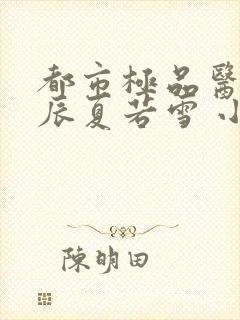 都市極品醫
辰夏若雪 小
陳明田